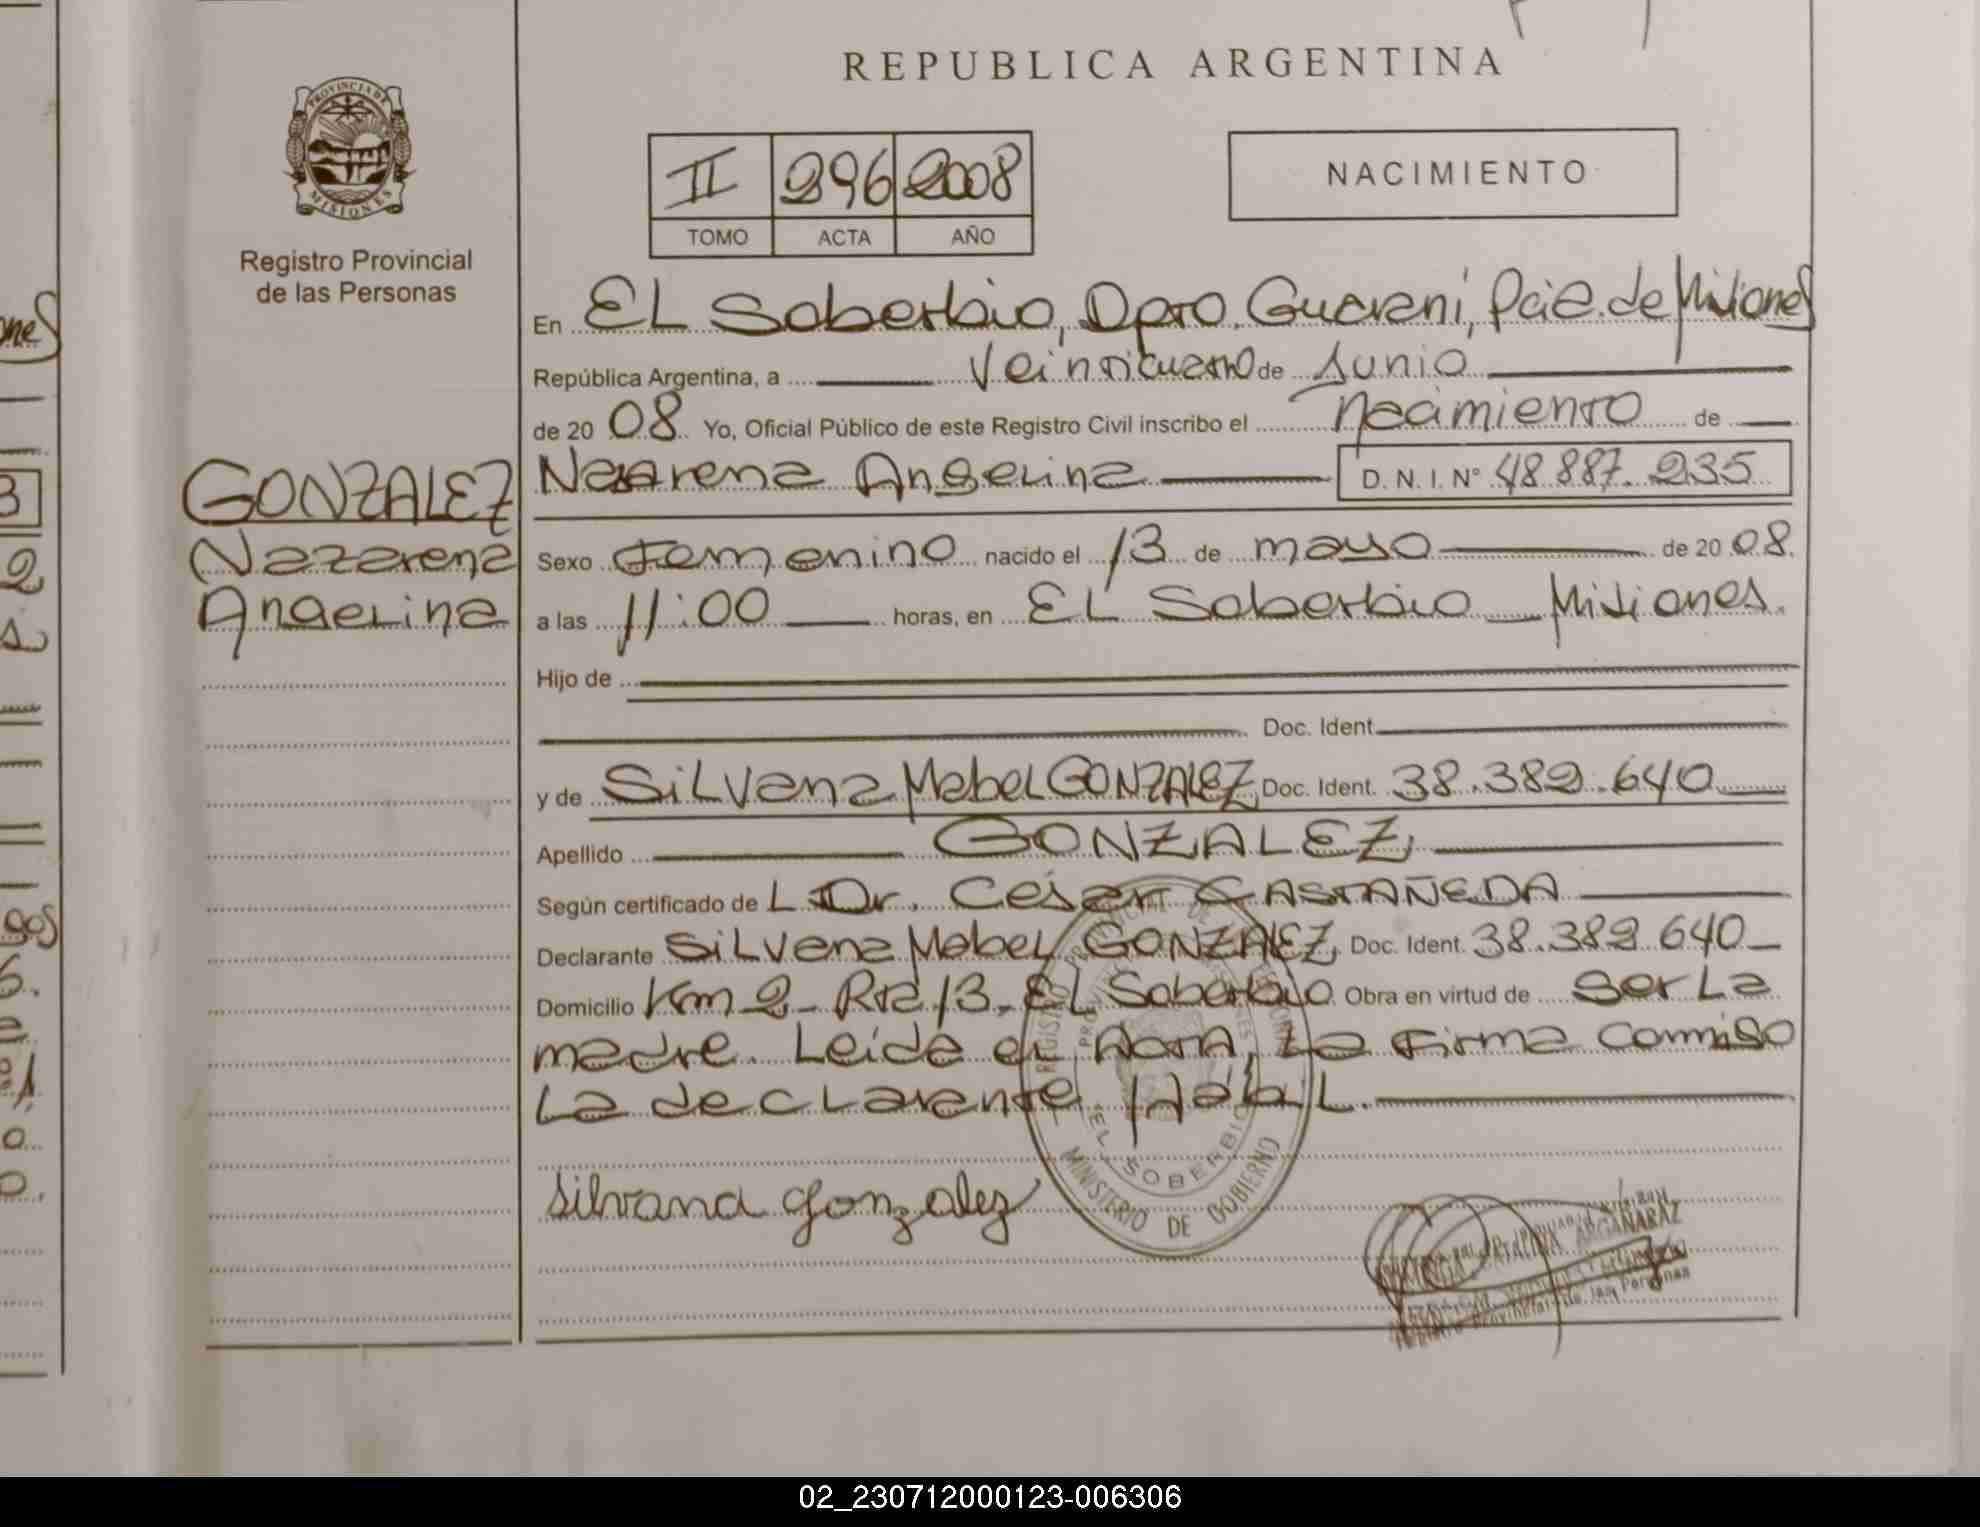 REPUBLICA ARGENTINA
PROVINCIA DE
MISIONES
Registro Provincial
de las Personas
II 296 2008
TOMO ACTA AÑO
NACIMIENTO
En EL Soberbio, Dpto. Guaraní, Pcia. de Misiones
República Argentina, a Veinticuatro de Junio
de 20 08 Yo, Oficial Público de este Registro Civil inscribo el Nacimiento de
GONZALEZ
Nazarena
Angelina
Nazarena Angelina D. N. I. Nº 48.887.235
Sexo Femenino nacido el 13 de mayo de 20 08.
a las 11:00 horas, en EL Soberbio Misiones.
Hijo de
Doc. Ident.
y de Silvana Mabel GONZALEZ, Doc. Ident. 38.389.640
Apellido GONZALEZ,
Según certificado de L Dr. César CASTAÑEDA
Declarante Silvana Mabel GONZALEZ, Doc. Ident. 38.389.640
Domicilio Km 2 - Rta 13 - El Soberbio Obra en virtud de ser La
madre. Leída el Acta, La Firma conmigo
La declarante
EL SOBERBIO
MINISTERIO DE GOBIERNO
Silvana Gonzalez
ARGAÑARAZ
Registro Provincial de las Personas
02_230712000123-006306